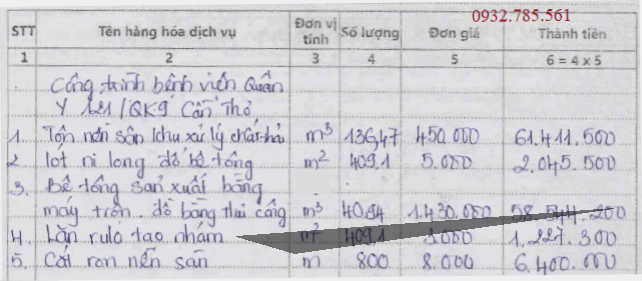 0932.785.561
STT Tên hàng hóa dịch vụ Đơn vị tính Số lượng Đơn giá Thành tiền
1 2 3 4 5 6 = 4 x 5
Công trình bệnh viện Quân
Y 121/QK9 Cần Thơ
1. Tôn nền sân khu xử lý chất thải m³ 136,47 450.000 61.411.500
2 lót ni long đổ bê tông m² 409.1 5.000 2.045.500
3. Bê tông sản xuất bằng
máy trộn đổ bằng thủ công m³ 40.94 1.430.000 58.544.200
4. Lăn rulô tạo nhám m² 409,1 3.000 1.227.300
5. Cắt ron nền sân m 800 8.000 6.400.000